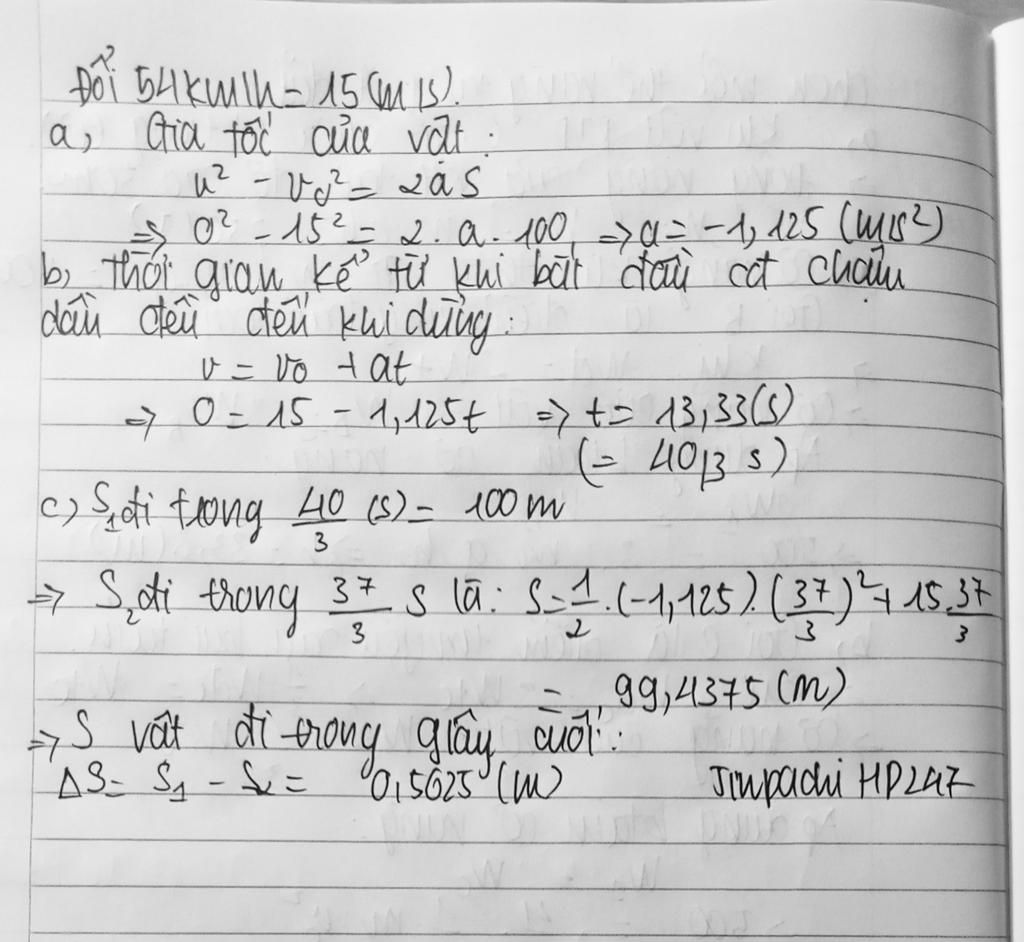 Đổi 54km/h = 15(m/s).
a, Gia tốc của vật:
v² - v₀² = 2as
=> 0² - 15² = 2.a.100 => a = -1,125 (m/s²)
b, Thời gian kể từ khi bắt đầu cđ chậm
dần đều đến khi dừng:
v = v₀ + at
=> 0 = 15 - 1,125t => t = 13,33(s)
(= 40/3 s)
c) S₁ đi trong 40/3 (s) = 100m
=> S₂ đi trong 37/3 s là: S = 1/2.(-1,125).(37/3)² + 15.37/3
= 99,4375 (m)
=> S vật đi trong giây cuối:
ΔS = S₁ - S₂ = 0,5625 (m) Jinpachi HP247